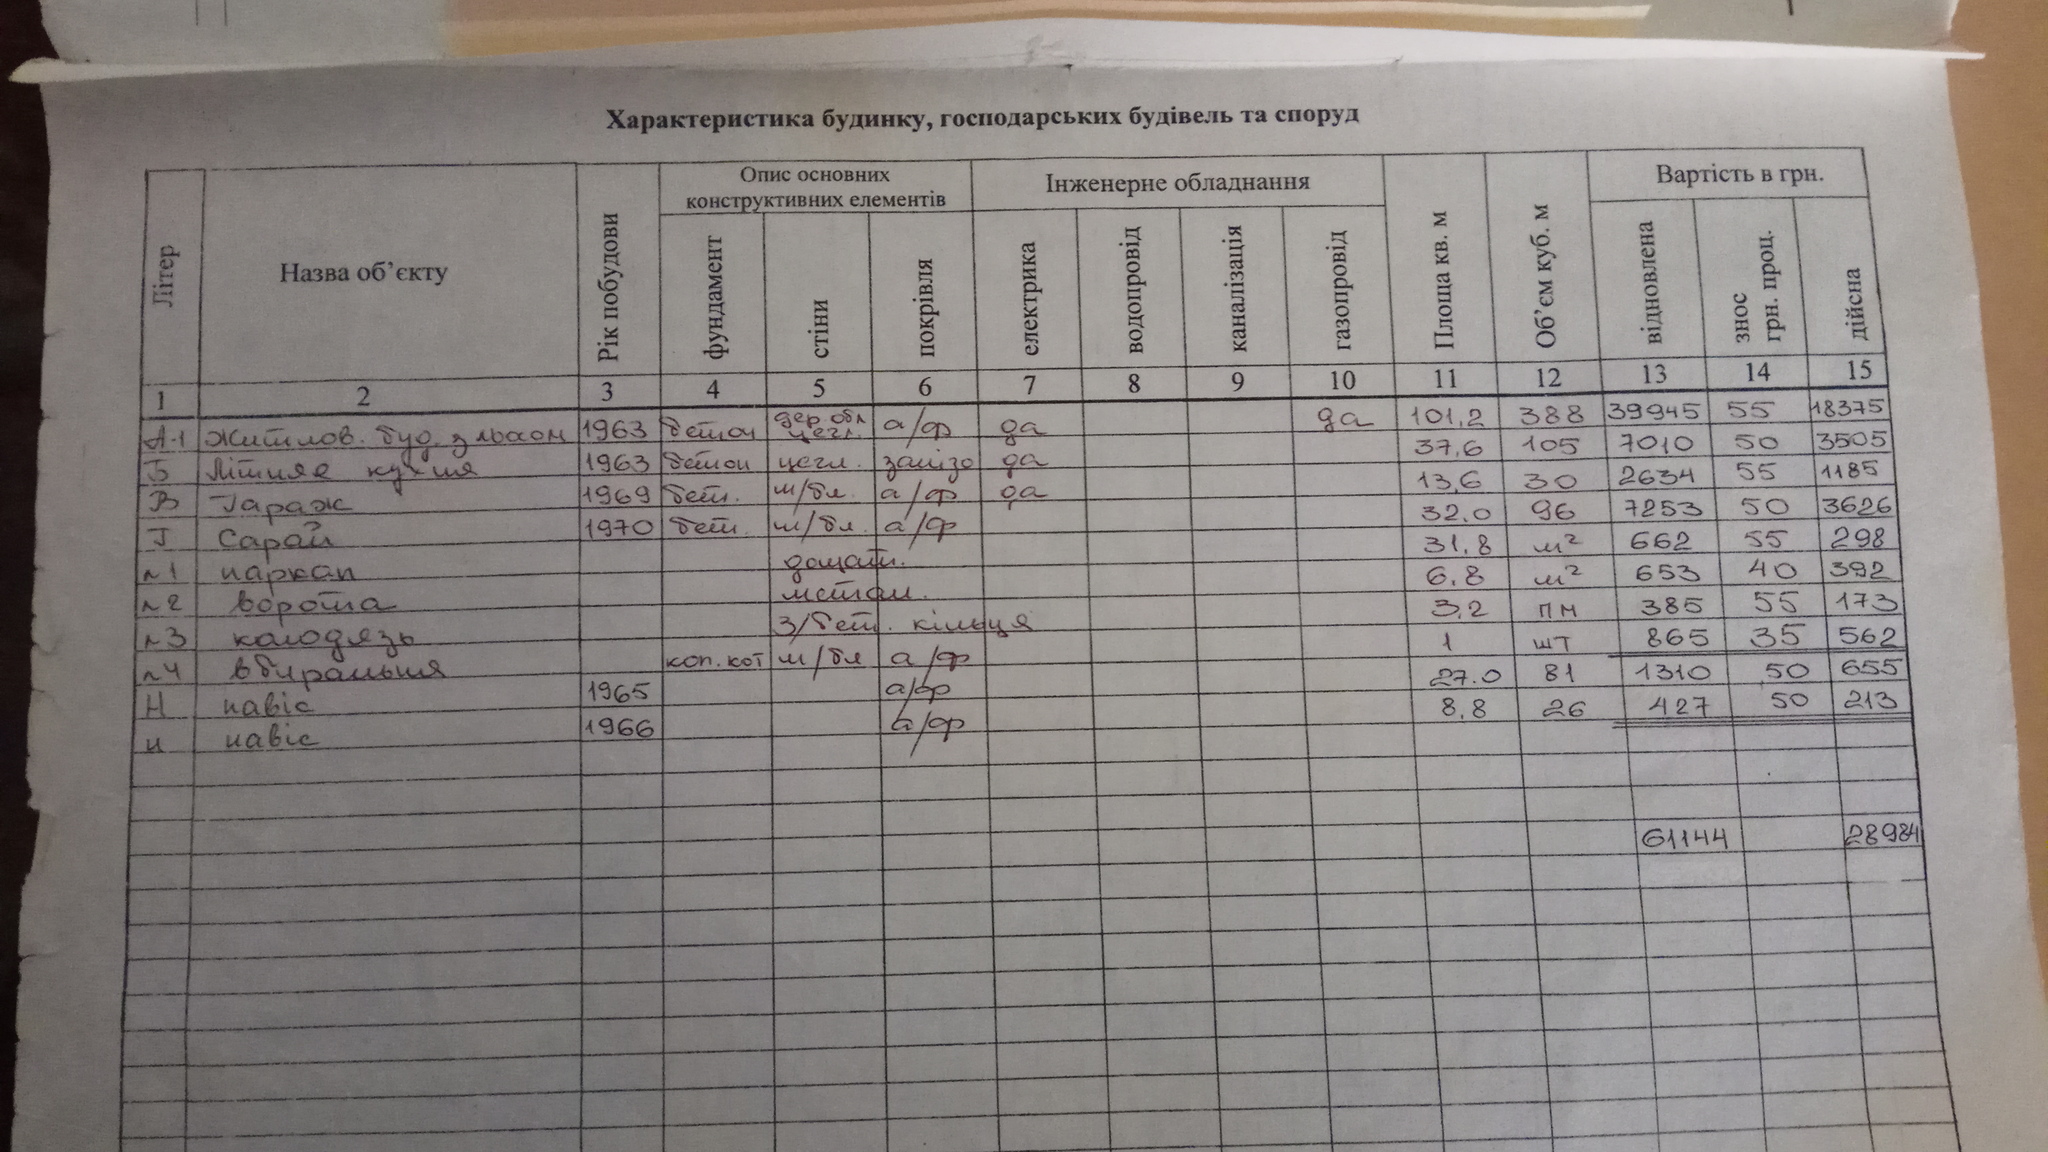 Характеристика будинку, господарських будівель та споруд
Літер Назва об’єкту Рік побудови Опис основних конструктивних елементів Інженерне обладнання Площа кв. м Об’єм куб. м Вартість в грн.
фундамент стіни покрівля електрика водопровід каналізація газопровід відновлена знос грн. проц. дійсна
1 2 3 4 5 6 7 8 9 10 11 12 13 14 15
А-1 житлов. буд. з льохом 1963 бетон дер. обл цегл. а/ф да да 101,2 388 39945 55 18375
Б Літняя кухня 1963 бетон цегл. залізо да 37,6 105 7010 50 3505
В Гараж 1969 бет. ш/бл. а/ф да 13,6 30 2634 55 1185
Г Сарай 1970 бет. ш/бл. а/ф 32.0 96 7253 50 3626
№1 паркан дощат. 31,8 м² 662 55 298
№2 ворота метал. 6,8 м² 653 40 392
№3 колодязь З/бет. кільця 3,2 пм 385 55 173
№4 вбиральня коп. кот ш/бл а/ф 1 шт 865 35 562
Н навіс 1965 а/ф 27.0 81 1310 50 655
н навіс 1966 а/ф 8,8 26 427 50 213
61144 28984